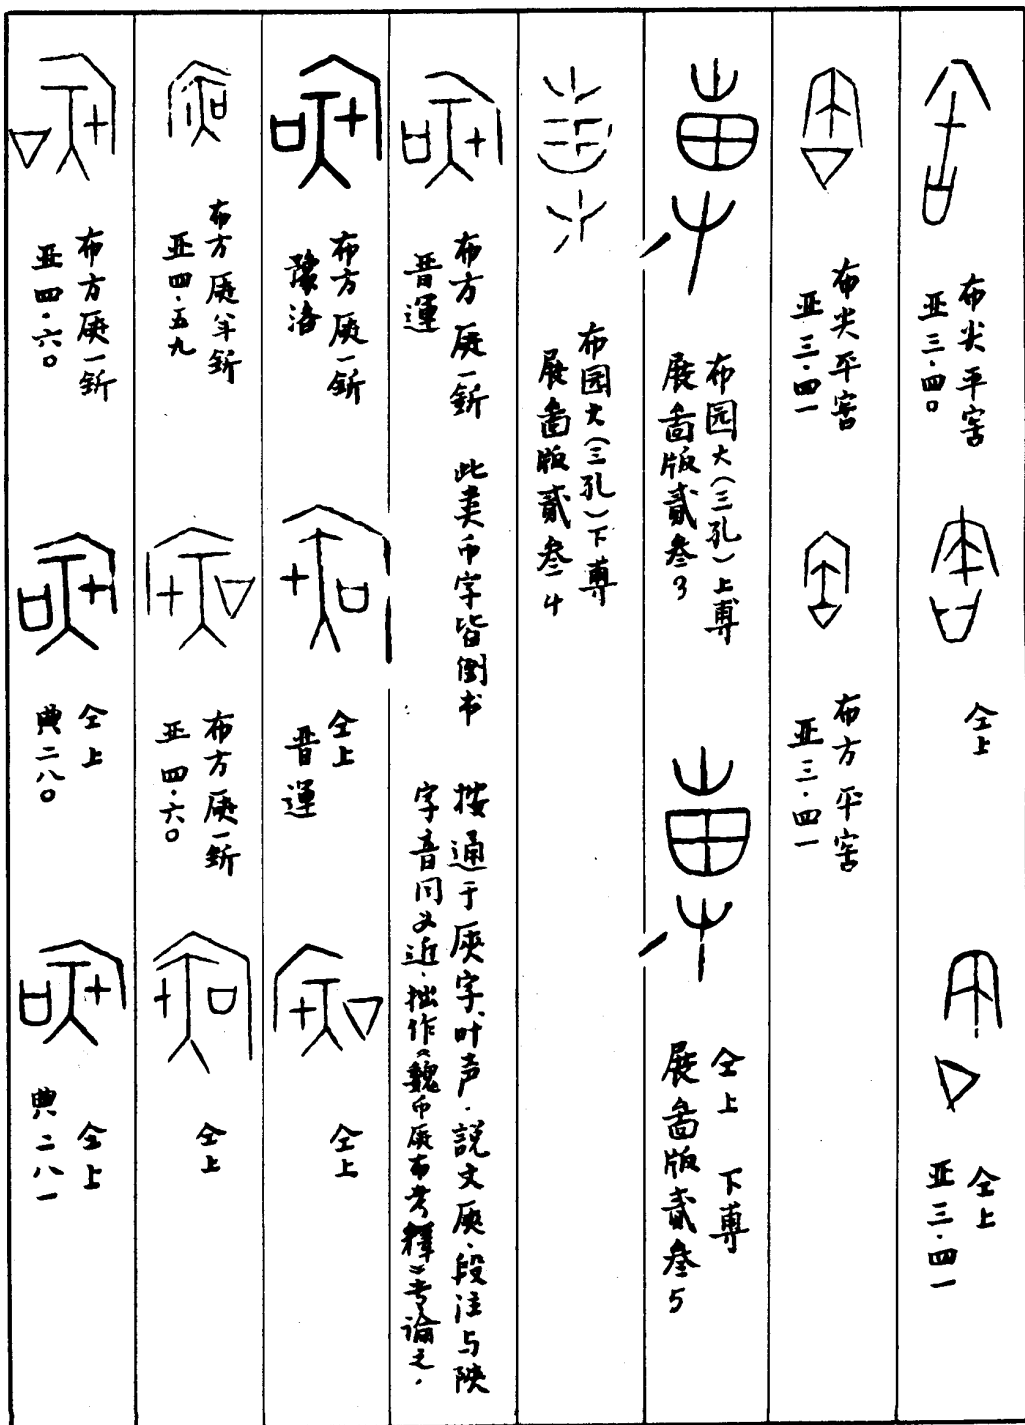 布尖平窖
亚三·四〇
仝上
仝上
亚三·四一
布尖平窖
亚三·四一
布方平窖
亚三·四一
布园大(三孔)上尃
展啚版貳叄3
仝上 下尃
展啚版貳叄5
布园大(三孔)下尃
展啚版貳叄4
布方㕍一釿 此类币字皆倒书
晋運
按通于㕍字,叶声.説文㕍.段注与陝
字音同义近.拙作《魏币㕍布考釋》考論之.
布方㕍一釿
豫洛
仝上
晋運
仝上
布方㕍半釿
亚四·五九
布方㕍一釿
亚四·六〇
仝上
布方㕍一釿
亚四·六〇
仝上
典二八〇
仝上
典二八一